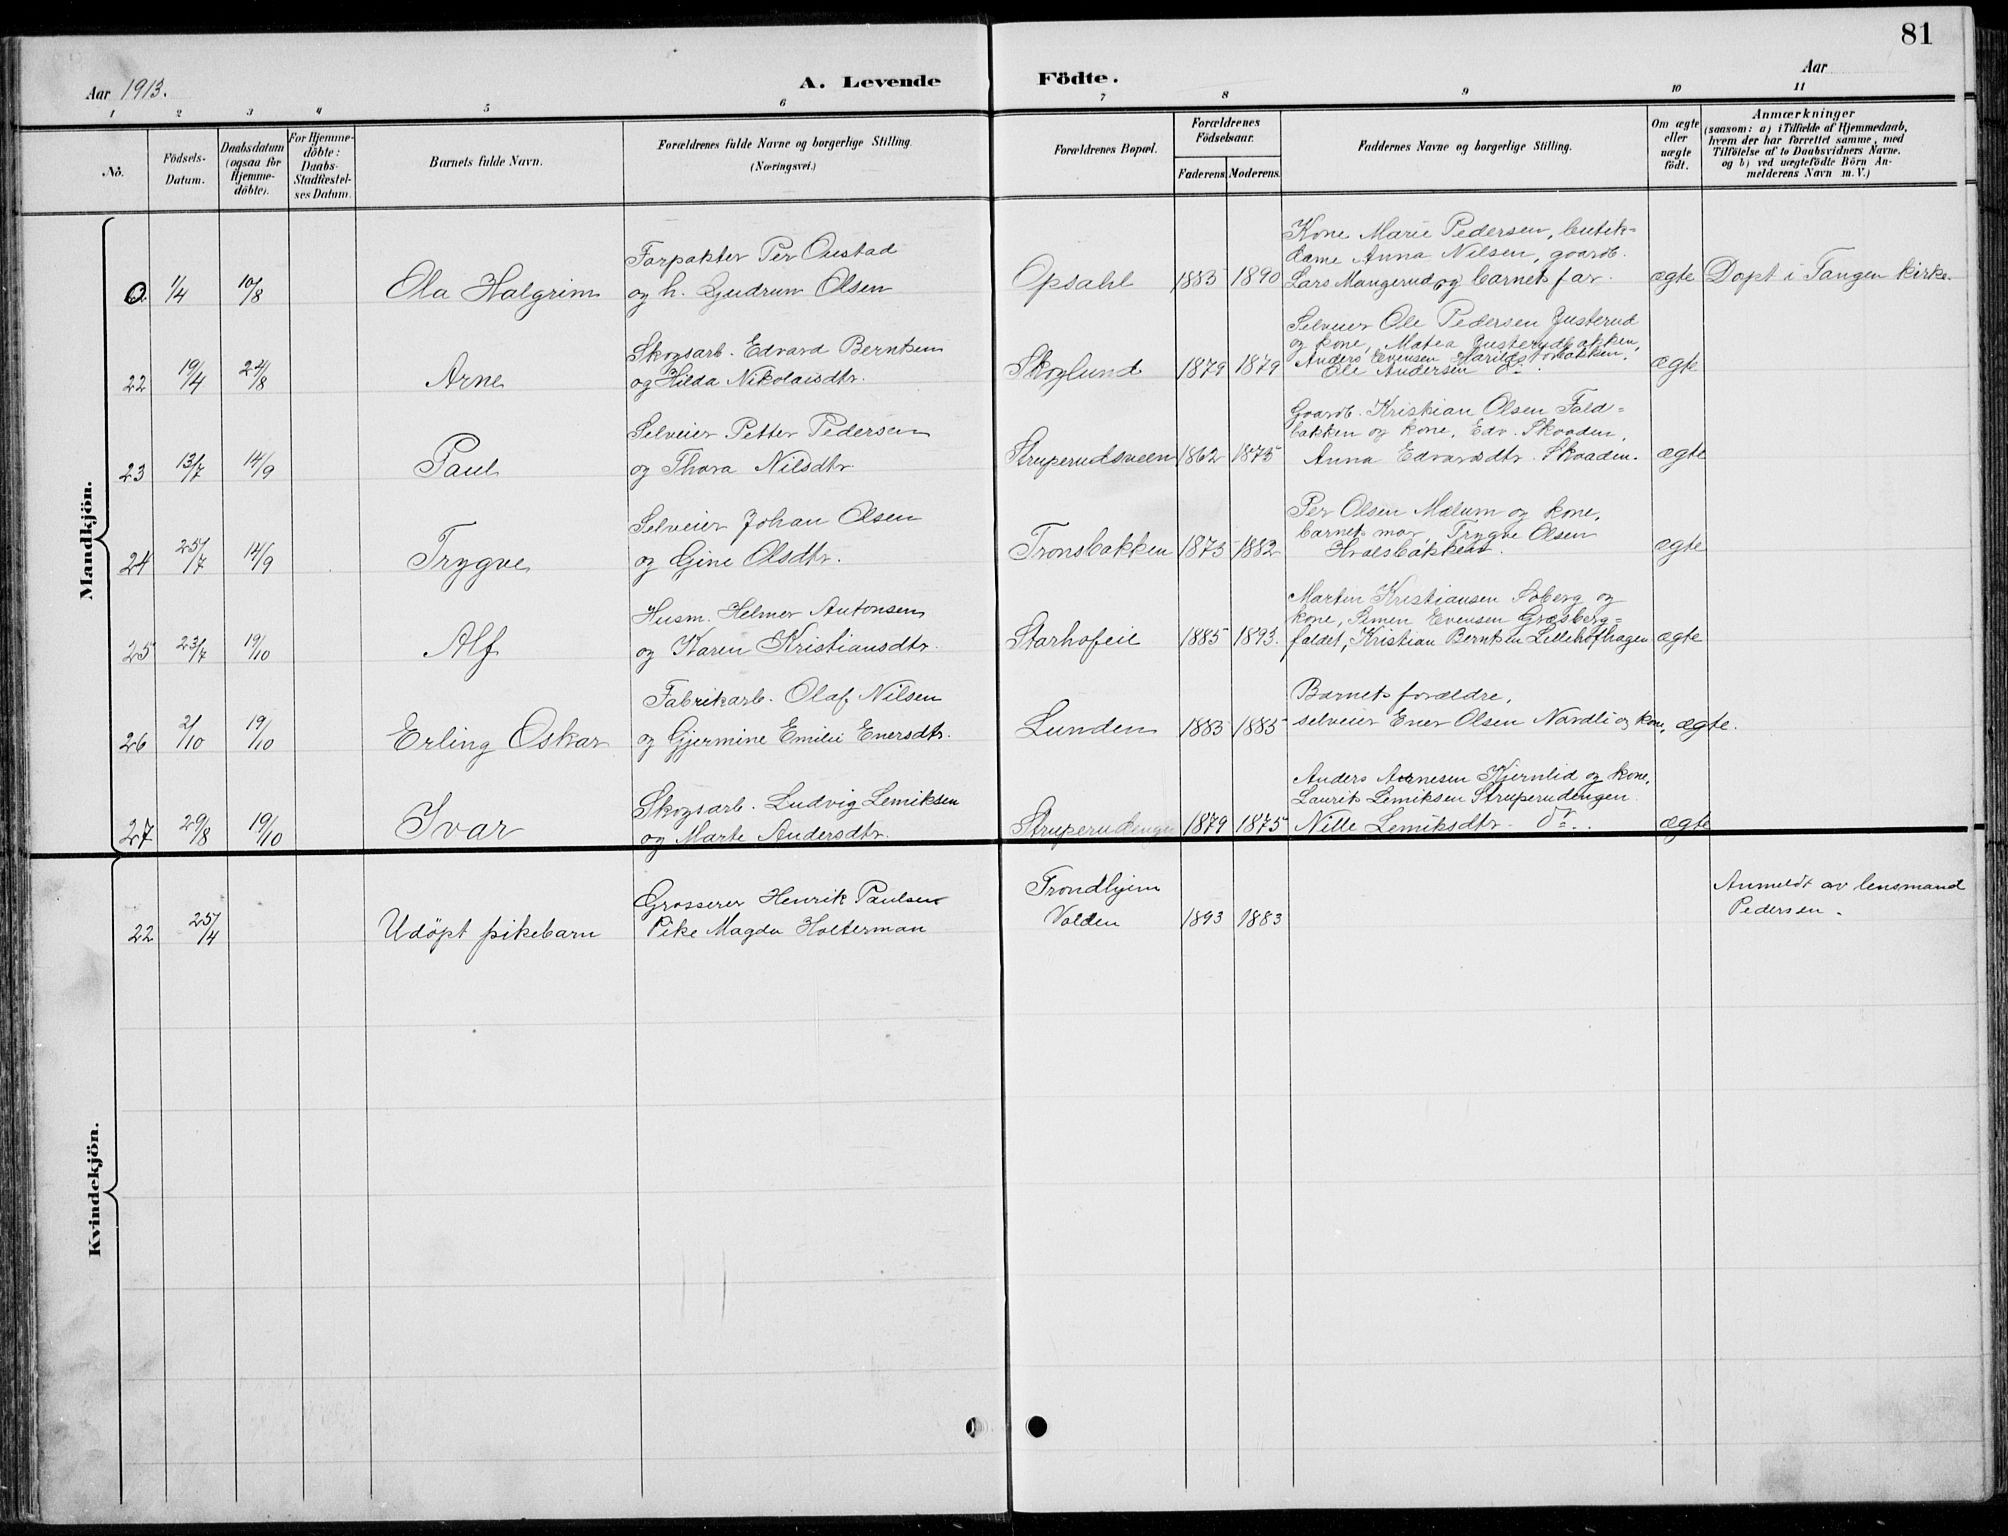 81
Aar 1913.
A. Levende Födte.
Aar
1 2 3 4 5 6 7 8 9 10 11
No.
Födsels-
Datum.
Daabsdatum
(ogsaa för
Hjemme-
döbte).
For Hjemme-
döbte:
Daabs-
Stadfæstel-
ses Datum.
Barnets fulde Navn.
Forældrenes fulde Navne og borgerlige Stilling.
(Næringsvei.)
Forældrenes Bopæl.
Forældrenes
Födselsaar.
Faderens. Moderens.
Faddernes Navne og borgerlige Stilling.
Om ægte
eller
uægte
födt.
Anmærkninger
(saasom: a) i Tilfælde af Hjemmedaab,
hvem der har forrettet samme, med
Tilföielse af to Daabsvidners Navne.
og b) ved uægtefödte Börn An-
melderens Navn m. V.)
Mandkjön.
0. 1/4 10/8
Ola Halgrim
Forpakter Per
og h. Gudrun Olsen
Opsahl
1883 1890
Kone Marie Pedersen, butik-
dame Anna Nilsen, gaardb.
Lars Mangerud og barnets far.
ægte
Døpt i Tangen kirke.
22 19/4 24/8
Arne
Skogsarb. Edvard Berntsen
og Hilda Nikolaisdtr.
Skoglund
1879 1879
Selveier Ole Pedersen Justerud
og kone, Matea Justerudbakken,
Anders Evensen
Ole Andersen do.
ægte
23 13/7 14/9
Paul
Selveier Petter Pedersen
og Thora Nilsdtr.
Struperudsveen
1862 1875
Gaardb. Kristian Olsen Fald-
bakken og kone, Edv. Skaaden,
Anna Edvardsdtr. Skaaden.
ægte
24 25/7 14/9
Trygve
Selveier Johan Olsen
og Gine Olsdtr.
Tronsbakken
1873 1882
Per Olsen Mælum og kone,
barnets mor, Trygve Olsen
Hvalsbakken.
ægte
25 23/7 19/10
Alf
Husm. Helmer Antonsen
og Karen Kristiansdtr.
Starhofeie
1885 1893.
Martin Kristiansen Soberg og
kone, Simen Evensen Græsberg-
faldet, Kristian Berntsen Lillehofhagen
ægte
26 2/10 19/10
Erling Oskar
Fabrikarb. Olaf Nilsen
og Gjermine Emilie Enersdtr.
Lunden
1883 1885
Barnets forældre,
selveier Ener Olsen Nordli og kone,
ægte.
27 29/8 19/10
Ivar
Skogsarb. Ludvig Lemiksen
og Marte Andersdtr.
Struperudengen
1879 1875
Anders Arnesen Kjernlid og kone,
Laurits Lemiksen Struperudengen.
Nille Lemiksdtr. do.
ægte
Kvindekjön.
22 25/4
Udøpt pikebarn
Grosserer Henrik Paulsen
Pike Magda Holterman
Trondhjem
Volden
1893 1883
Anmeldt av lensmand
Pedersen.